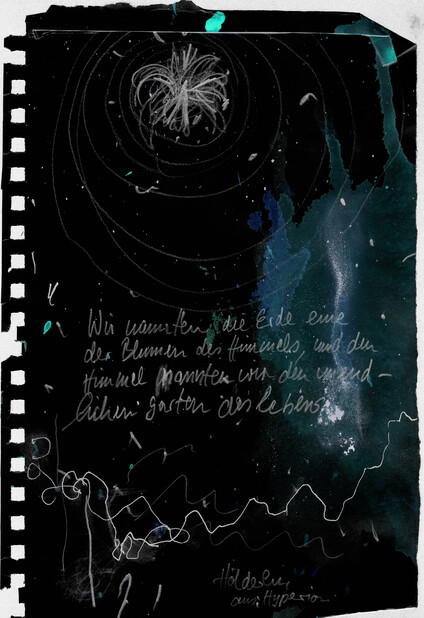 Wir nannten die Erde eine
der Blumen des Himmels, und den
Himmel nannten wir den unend-
lichen Garten des Lebens.
Hölderlin,
aus: Hyperion